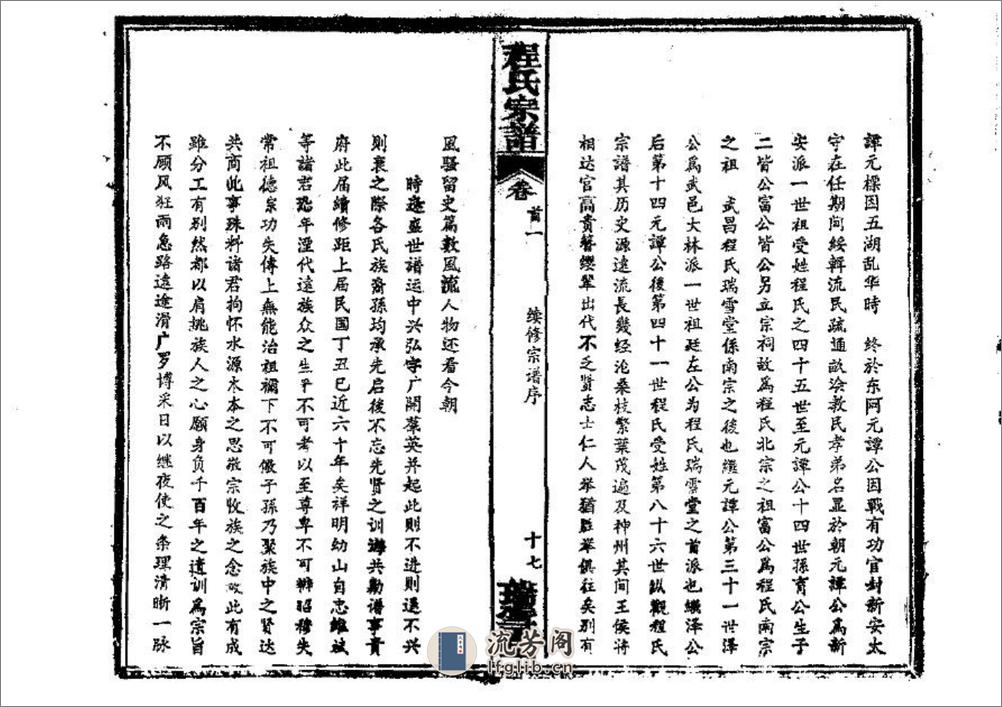 譚元標因五湖乱华時　終於东阿元譚公因戰有功官封新安太
守在任期间綏輯流民疏通畝澮教民孝弟名显於朝元譚公爲新
安派一世祖受姓程氏之四十五世至元譚公十四世孫育公生子
二皆公富公皆公另立宗祠故爲程氏北宗之祖富公爲程氏南宗
之祖　武昌程氏瑞雪堂係南宗之後也繼元譚公第三十一世澤
公爲武邑大林派一世祖廷左公为程氏瑞雪堂之首派也繼澤公
后第十四元譚公後第四十一世程氏受姓第八十六世纵觀程氏
宗譜其历史源遠流長幾经沧桑枝繁葉茂遍及神州其间王侯将
相达官高貴簪缨輩出代不乏贤志士仁人举猶胜举俱往矣别有
程氏宗譜
卷
首一
续修宗谱序
十七
風騷留史篇數風流人物还看今朝
時逢盛世譜运中兴弘字广開羣英并起此則不进則退不兴
則衰之際各氏族裔孫均承先启後不忘先贤之训共勷谱事貴
府此届續修距上届民国丁丑已近六十年矣祥明幼山自忠維斌
等諸君恐年湮代遠族众之生乎不可考以至尊卑不可辨昭穆失
常祖德宗功失傳上無能治祖禰下不可儆子孫乃聚族中之贤达
共商此事殊料諸君拘怀水源木本之思敬宗收族之念故此有成
雖分工有别然都以肩挑族人之心願身负千百年之遺训爲宗旨
不顾风狂雨急路遠途滑广罗博采日以继夜使之条理清晰一脉
流芳阁
lfglib.cn